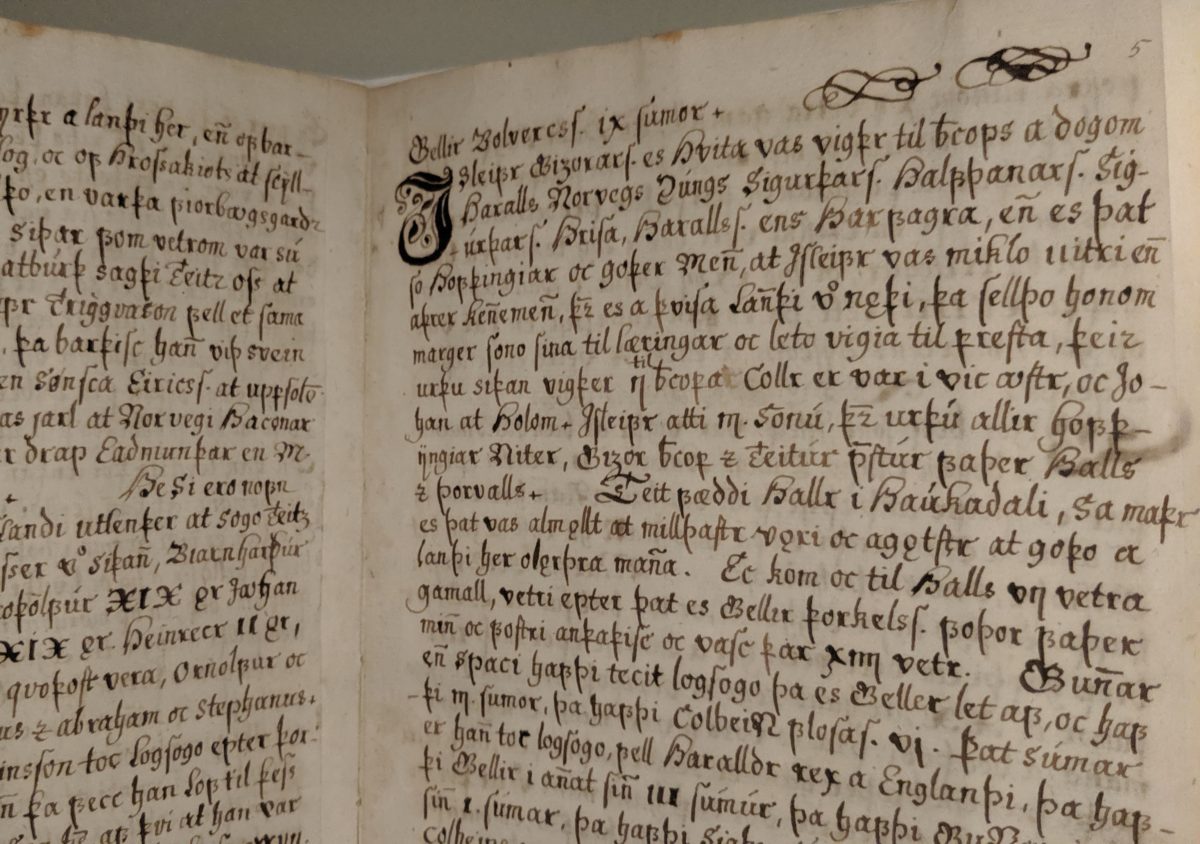 yrþr a lanþi her, en̄ oꝼ bar-
log, oc oꝼ Hrossakiots at scyll-
þo, en varþa ꝼiorbꜹgsgardꝛ
siþar ꝼom vetrom var sú
atburþ sagþi Teitꝛ oss at
Triggvason ꝼell et sama
, þa barþisc han̄ viþ svein
en Sønsca Eiricss. at uppsolō
as jarl at Norvegi Haconar
r drap Eadmunþar en M.
Hesi ero noꝼn
landi utlenþer at sogo Teitꝛ
sser vͦ siþan̄, Biarnharþúr
XIX ęr Johan
XIX ęr. Heinrecr II ęr,
quoþosꞇ vera, Ornolꝼur oc
us ⁊ abraham oc Stephanus.
insson toc logsogo epter þor-
n̄ þa ꝼecc han loꝼ til þess
aꝼ þvi at han var
5
Gellir Bolvercss. ix sumor.
Isleiꝼr Gizorarſ. es Hvita vas vigþr til b̄cops a dogom
Haralls Norvegs Kúngs Sigurþarſ. Halꝼþanarſ. Sig-
úrþarſ. Hrisa, Haralls ſ. ens Harꝼagra, en̄ es þat
so Hoꝼþingiar oc goþer Men̄, at Isleiꝼr vas miklo uitri en̄
aþrer ken̄emen̄, þꝛ̄ es a þvisa Lan̄þi vͦ nęþi, þa sellþo honom
marger sono sina til læringar oc leto vigia til presta, þeir
urþu siþan vigþer ij til b̄copa Collr er var i vic ꜹstr, oc Jo-
han at Holom. Isleiꝼr atti m. Sonú, þꝛ̄ urþú allir hoꝼþ-
ijngiar Niter, Gizor b̄cop ⁊ Teitúr p̄stúr ꝼaþer Halls
⁊ þorvalls. Teit ꝼæddi Hallr i Haúkadali, Sa maþr
es þat vas alm ęllt at millþastr vęri oc agętstr at goþo a
lanþi her olęrþra man̄a. Ec kom oc til Halls vij vetra
gamall, vetri epter þat es Gellir þorkelss. ꝼoþor ꝼaþer
min̄ oc ꝼostri anþaþisc oc vasc þar xiiij vetr. Gun̄ar
en̄ spaci haꝼþi tecit logsogo þa es Geller let aꝼ, oc haꝼ
þi m. sumor, þa haꝼþi Colbein ꝼlosas. vj. þat súmar
er han̄ toc logsógo, ꝼell Haralldr rex a Englanþi, þa haꝼ-
þi Gellir i an̄at sin̄ III súmúr, þa haꝼþi
sin̄ 1. súmar, þa haꝼþi